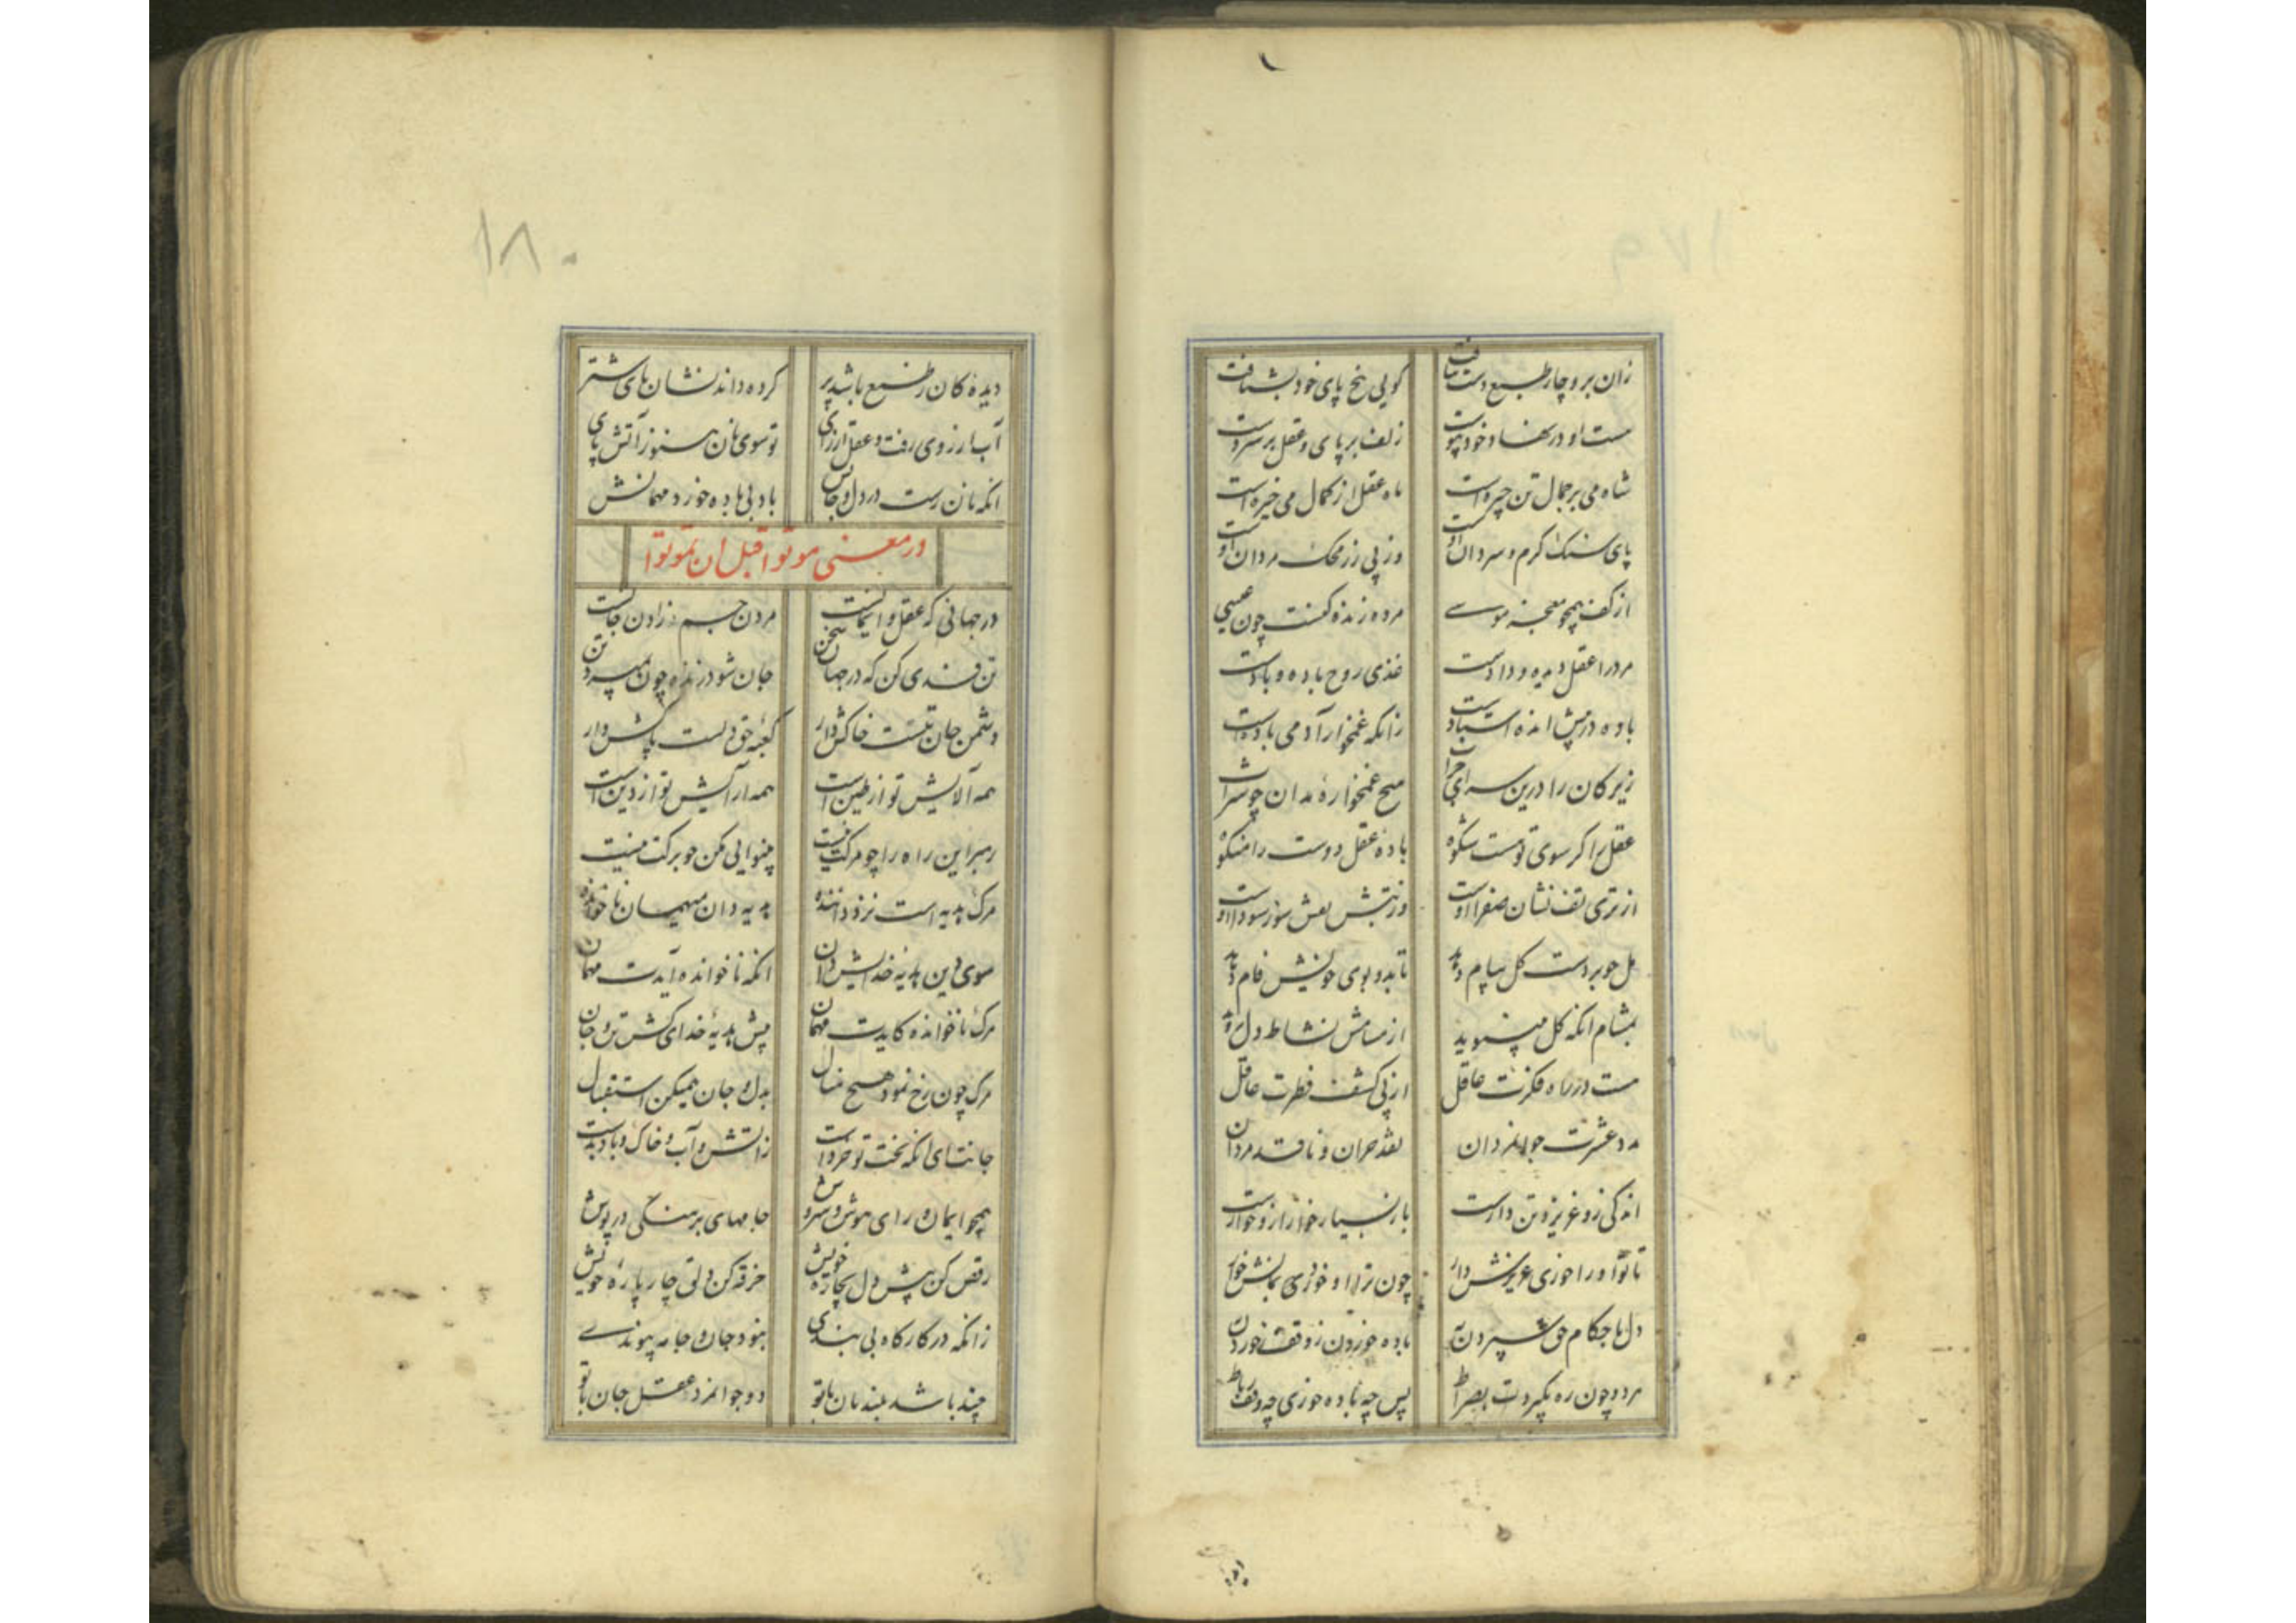 زان بر و چار طبع دست بیافت گویی پنج پای خود بشتافت
مست او در نهاد خود پیوست زلف بر پای و عقل بر سر دست
شاه می بر جمال تن چیره است ماه عقل از کمال می خیره است
پای سنک کرم و سردان اوست وز پی رز محک مردان اوست
از کف همچو معجز موسے مرده زنده کنست چون عیسی
مرد را عقل دیده و دادست غذی روح باده و بادست
باده درپیش انده استبادست زانکه غمخوار آدمی بادست
زیرکان را درین سرای خراب هیچ غمخواره مدان چو شراب
عقل را کر سوی تو هست شکوه باده عقل دوست را منکوه
از تری تف نشان صفرا اوست وز تبش سوز سودا اوست
مل چو بر دست کل پیام دهد تا بدو بوی خویش فام دهد
بمشام انکه کل میبوید از مسامش نشاط دل روید
هست در راه فکرت عاقل از پی کشف فطرت غافل
مدد عشرت جوانمردان نقد حران و ناقد مردان
اندکی زو عزیز و تن دارست باز بسیار خوار ازو خوارست
تا تو او را خوری عزیزش دار چون ترا او خورد بمانش خوار
دل باحکام حق سپردن به باده خوردن ز وقف خوردن به
مرد چون ره بگیردت بصراط پس چه باده خوری چه وقف رباط
۱۸۰
دیده کان ز طبع باشد پر کرده داند نشان پای شتر
آب از روی رفت و عقل از رای تو سوی نان هنوز آتش پای
انکه نان رست در دل و جانش باد بی باده خورد مهمانش
در معنی موتوا قبل ان تموتوا
در جهانی که عقل و ایمانست مردن جسم زادن جانست
تن فدی کن که در جهان سخن جان شود زنده چون بمیرد تن
دشمن جان تنست خاکش دار کعبه حق دلست پاکش دار
همه آلایش تو از طین است همه آرایش تو از دین است
رهبر این راه را چو مرکت نیست بینوایی مکن چو برکت نیست
مرک هدیه است نزد داننده هدیه دان میهمان ناخوانده
سوی دین هدیه خدایش دان انکه ناخوانده آیدت مهمان
مرک ناخوانده کایدت مهمان پیش هدیه خدای کش تن و جان
مرک چون رخ نمود هیچ منال بدل و جان همیکن استقبال
جانت ای انکه نخت تو خرد است ز آتش و آب و خاک و باد بدست
همچو ایمان ورای هوش و سروش جامهای برهنگی در پوش
رقص کن پیش دل بچاره خویش خرقه کن دلق چار پاره خویش
زانکه در کارکاه بی بندی بنود جان و جامه پیوندے
چند باشد ببند نان با تو دو جوانمرد عقل جان با تو